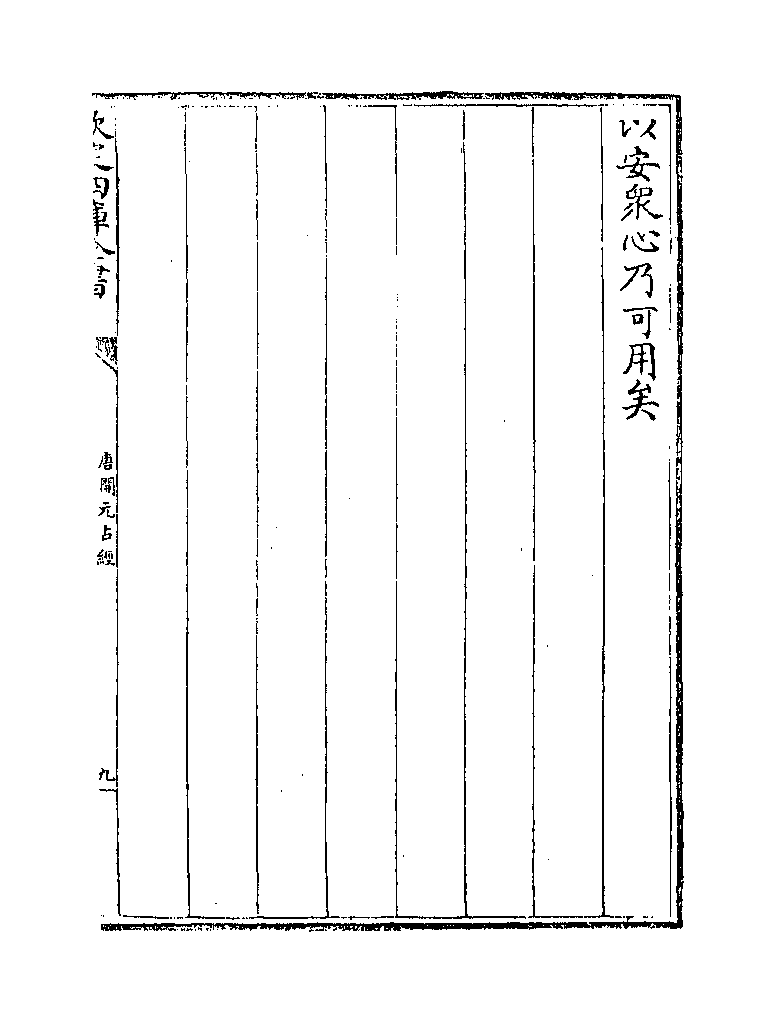 以安衆心乃可用矣
欽定四庫全書
唐開元占經
九